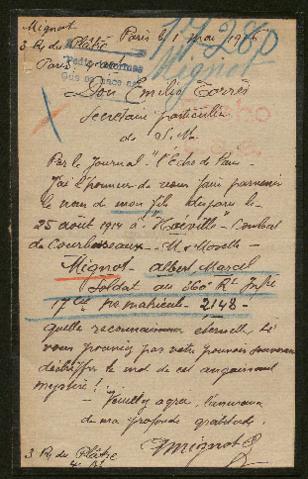 Mignot Paris le 1 mai 1916
3 R. du Plâtre 17280
Paris Mignot
Don Emilio Torrès
Secretaire particulier
de S. M.
Par le Journal "l'Echo de Paris
J'ai l'honneur de vous faire parvenir
le nom de mon fils disparu le
25 août 1914 à Hoéville - Combat
de Courbesseaux - M & Moselle -
Mignot - Albert Marcel
Soldat au 360e Rt Infie
17e Cie matricule - 2148 -
quelle reconnaissance eternelle si
vous pouviez par votre
déchiffrer le mot de cet angoissant
mystère!
Veuillez agréer l'assurance
de ma profonde gratitude.
Mignot
3 R. du Plâtre